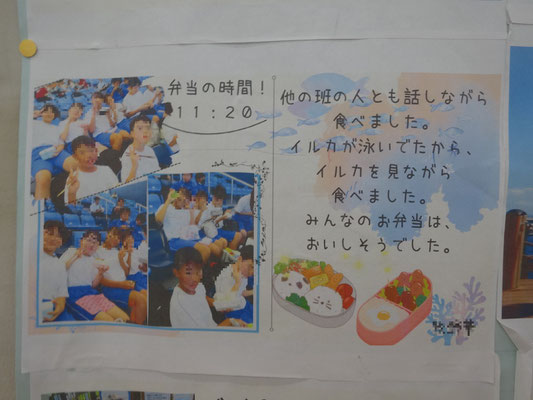 弁当の時間！
11：20
他の班の人とも話しながら
食べました。
イルカが泳いでたから、
イルカを見ながら
食べました。
みんなのお弁当は、
おいしそうでした。